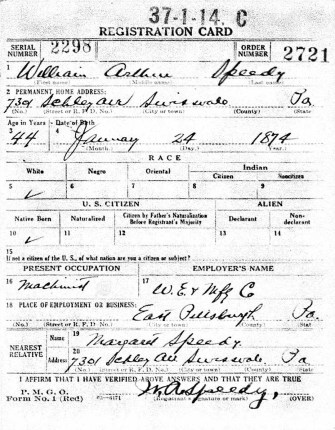 37-1-14. C
REGISTRATION CARD
SERIAL NUMBER 2298 ORDER NUMBER 2721
1 William Arthur Speedy
(First name) (Middle name) (Last name)
2 PERMANENT HOME ADDRESS:
7301 Schley Ave Swissvale Pa
(No.) (Street or R. F. D. No.) (City or town) (County) (State)
Age in Years Date of Birth
3 44 4 January 24 1874
(Month.) (Day.) (Year.)
RACE
White Negro Oriental Indian
Citizen Noncitizen
5 ✓ 6 7 8 9
U. S. CITIZEN ALIEN
Native Born Naturalized Citizen by Father's Naturalization Before Registrant's Majority Declarant Non-declarant
10 ✓ 11 12 13 14
15
If not a citizen of the U. S., of what nation are you a citizen or subject?
PRESENT OCCUPATION EMPLOYER'S NAME
16 Machinist 17 W. E. & Mfg Co
18 PLACE OF EMPLOYMENT OR BUSINESS:
East Pittsburgh Pa
(No.) (Street or R. F. D. No.) (City or town) (County) (State)
NEAREST RELATIVE Name 19 Margaret Speedy
Address 20 7301 Schley Ave Swissvale Pa
(No.) (Street or R. F. D. No.) (City or town) (County) (State)
I AFFIRM THAT I HAVE VERIFIED ABOVE ANSWERS AND THAT THEY ARE TRUE
P. M. G. O.
Form No. 1 (Red) W. A. Speedy
(Registrant's signature or mark) (OVER)